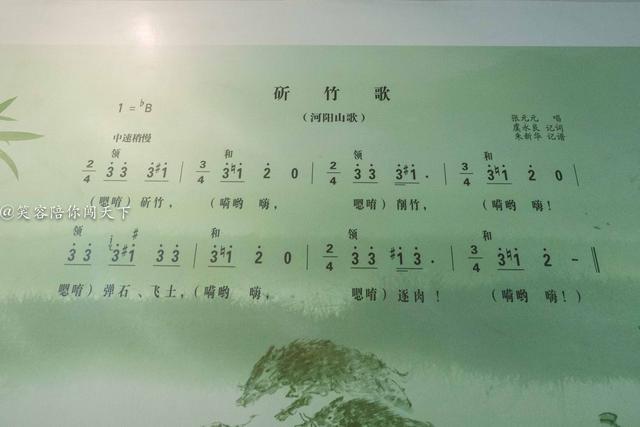 斫竹歌
（河阳山歌）
1 = ♭B
张元元 唱
虞永良 记词
朱新华 记谱
中速稍慢
领 和 领 和
2/4 3 3 3 ♯1 | 3/4 3 ♮1 2 0 | 2/4 3 3 3 ♯1 · | 3/4 3 ♮1 2 0 |
（嗯唷）斫竹，（嗬哟 嗨， 嗯唷）削竹，（嗬哟 嗨！
@笑容陪你闯天下
领 和 领 和
3 3 3 ♯1 3 3 | 3 ♮1 2 0 | 2/4 3 3 ♯1 3 · | 3/4 3 ♮1 2 – ‖
嗯唷）弹石、飞土，（嗬哟 嗨， 嗯唷）逐肉！（嗬哟 嗨！）